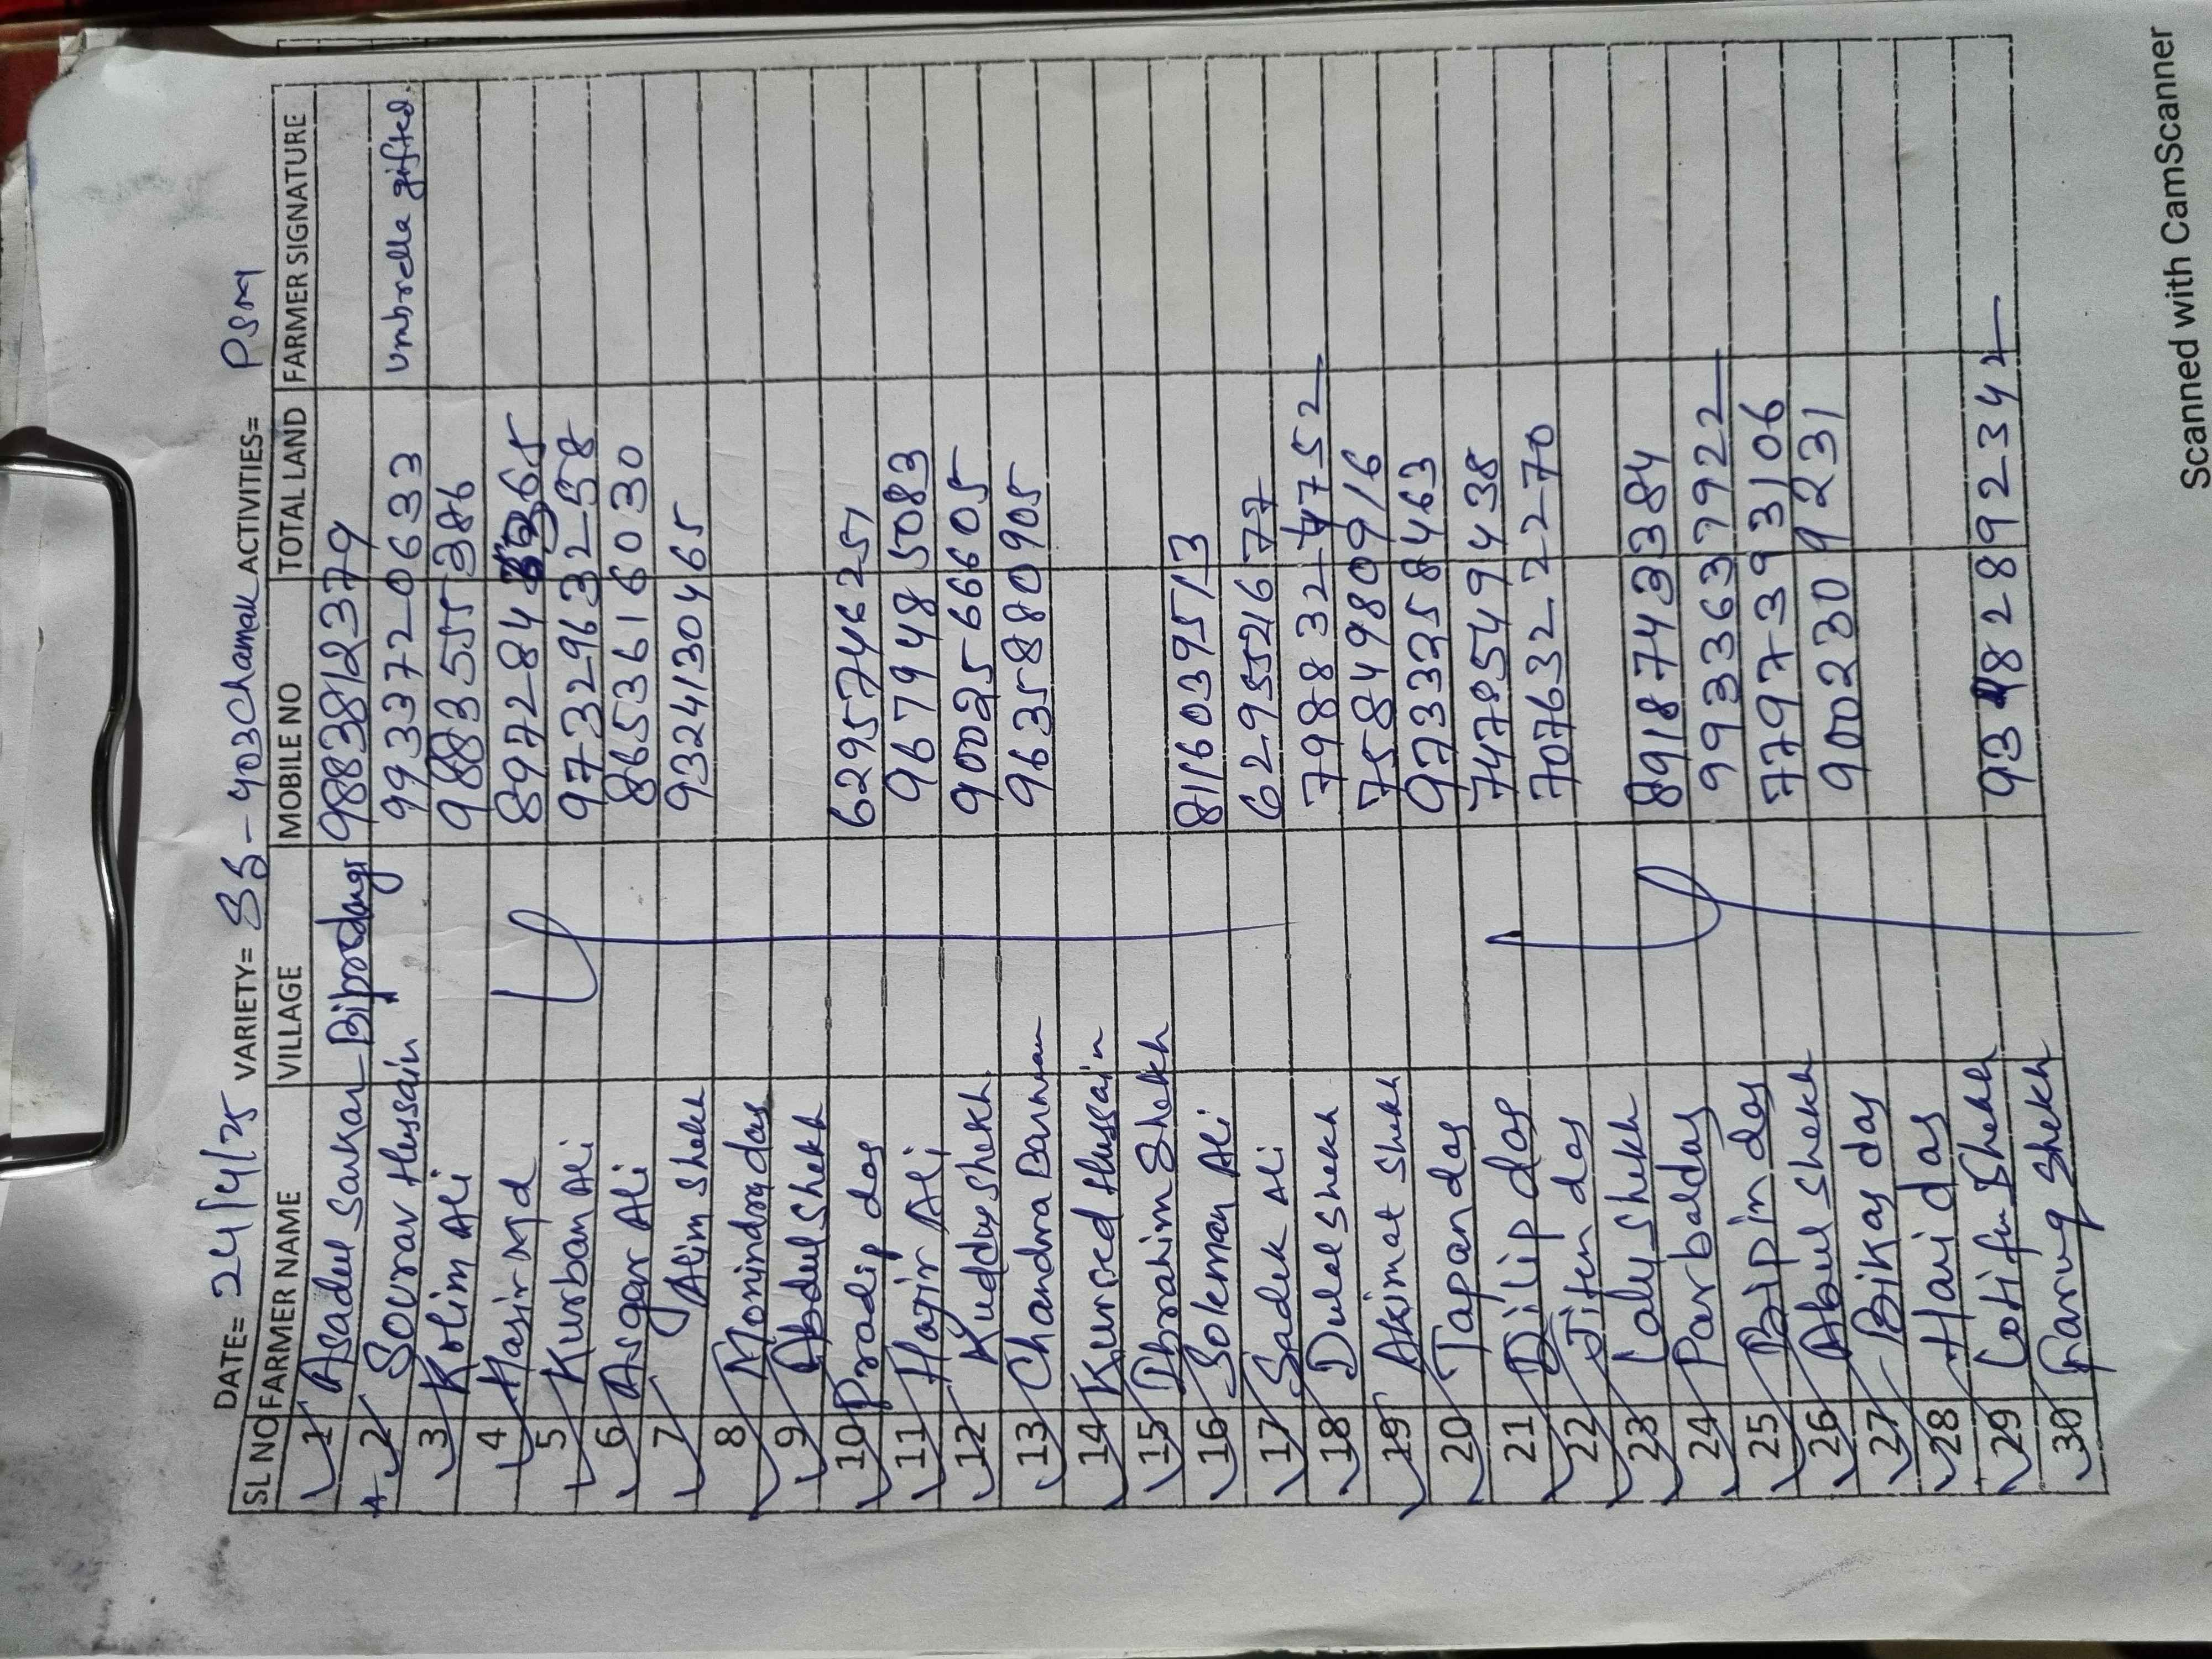 DATE= 24/4/25 VARIETY= SS-403 Chamak ACTIVITIES= PSM
SL NO FARMER NAME VILLAGE MOBILE NO TOTAL LAND FARMER SIGNATURE
1 Asadul Sarkar 9883812379
2 Sourav Hussain 9933720633 Umbrella gifted
3 Kolim Ali 9883555386
4 Hasir Md
5 Kurban Ali 9732963258
6 Asgar Ali 8653616030
7 Alim Shekh 9324130465
8 Monindra das
9 Abdul Shekh
10 Pradip das 6295746251
11 Hajir Ali 9679485083
12 Kuddus Shekh 9002566605
13 Chandra Barman 9635880905
14 Kursed Hussain
15 Ibrahim Shekh
16 Soleman Ali 8116039513
17 Sadek Ali 6295521677
18 Dulal Shekh 7988324752
19 Akimat Shekh 7584980916
20 Tapan das 9733258463
21 Dilip das 7478549438
22 Jiten das 7076322270
23 Laly Shekh
24 Parbal das 8918743384
25 Bipin das 9933637922
26 Abul Shekh 7797393106
27 Bikas das 9002309231
28 Hari das
29 Lotifur Shekh
30 Faruq Shekh 9348289234
Scanned with CamScanner